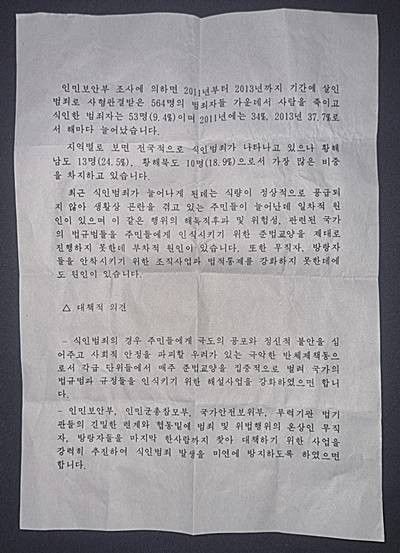 인민보안부 조사에 의하면 2011년부터 2013년까지 기간에 살인
범죄로 사형판결받은 564명의 범죄자들 가운데서 사람을 죽이고
식인한 범죄자는 53명(9.4%)이며 2011년에는 34%, 2013년 37.7%로
서 해마다 늘어났습니다.
지역별로 보면 전국적으로 식인범죄가 나타나고 있으나 황해
남도 13명(24.5%), 황해북도 10명(18.9%)으로서 가장 많은 비중
을 차지하고 있습니다.
최근 식인범죄가 늘어나게 된데는 식량이 정상적으로 공급되
지 않아 생활상 곤란을 겪고 있는 주민들이 늘어난데 일차적 원
인이 있으며 이 같은 행위의 해독적후과 및 위험성, 관련된 국가
의 법규범들을 주민들에게 인식시키기 위한 준법교양을 제대로
진행하지 못한데 부차적 원인이 있습니다. 또한 무직자, 방랑자
들을 안착시키기 위한 조직사업과 법적통제를 강화하지 못한데에
도 원인이 있습니다.
△ 대책적 의견
- 식인범죄의 경우 주민들에게 극도의 공포와 정신적 불안을 심
어주고 사회적 안정을 파괴할 우려가 있는 극악한 반체제책동으
로서 각급 단위들에서 매주 준법교양을 집중적으로 벌려 국가의
법규범과 규정들을 인식시키기 위한 해설사업을 강화하였으면 합
니다.
- 인민보안부, 인민군총참모부, 국가안전보위부, 무력기관 법기
관들의 긴밀한 련계와 협동밑에 범죄 및 위법행위의 온상인 무직
자, 방랑자들을 마지막 한사람까지 찾아 대책하기 위한 사업을
강력히 추진하여 식인범죄 발생을 미연에 방지하도록 하였으면
합니다.